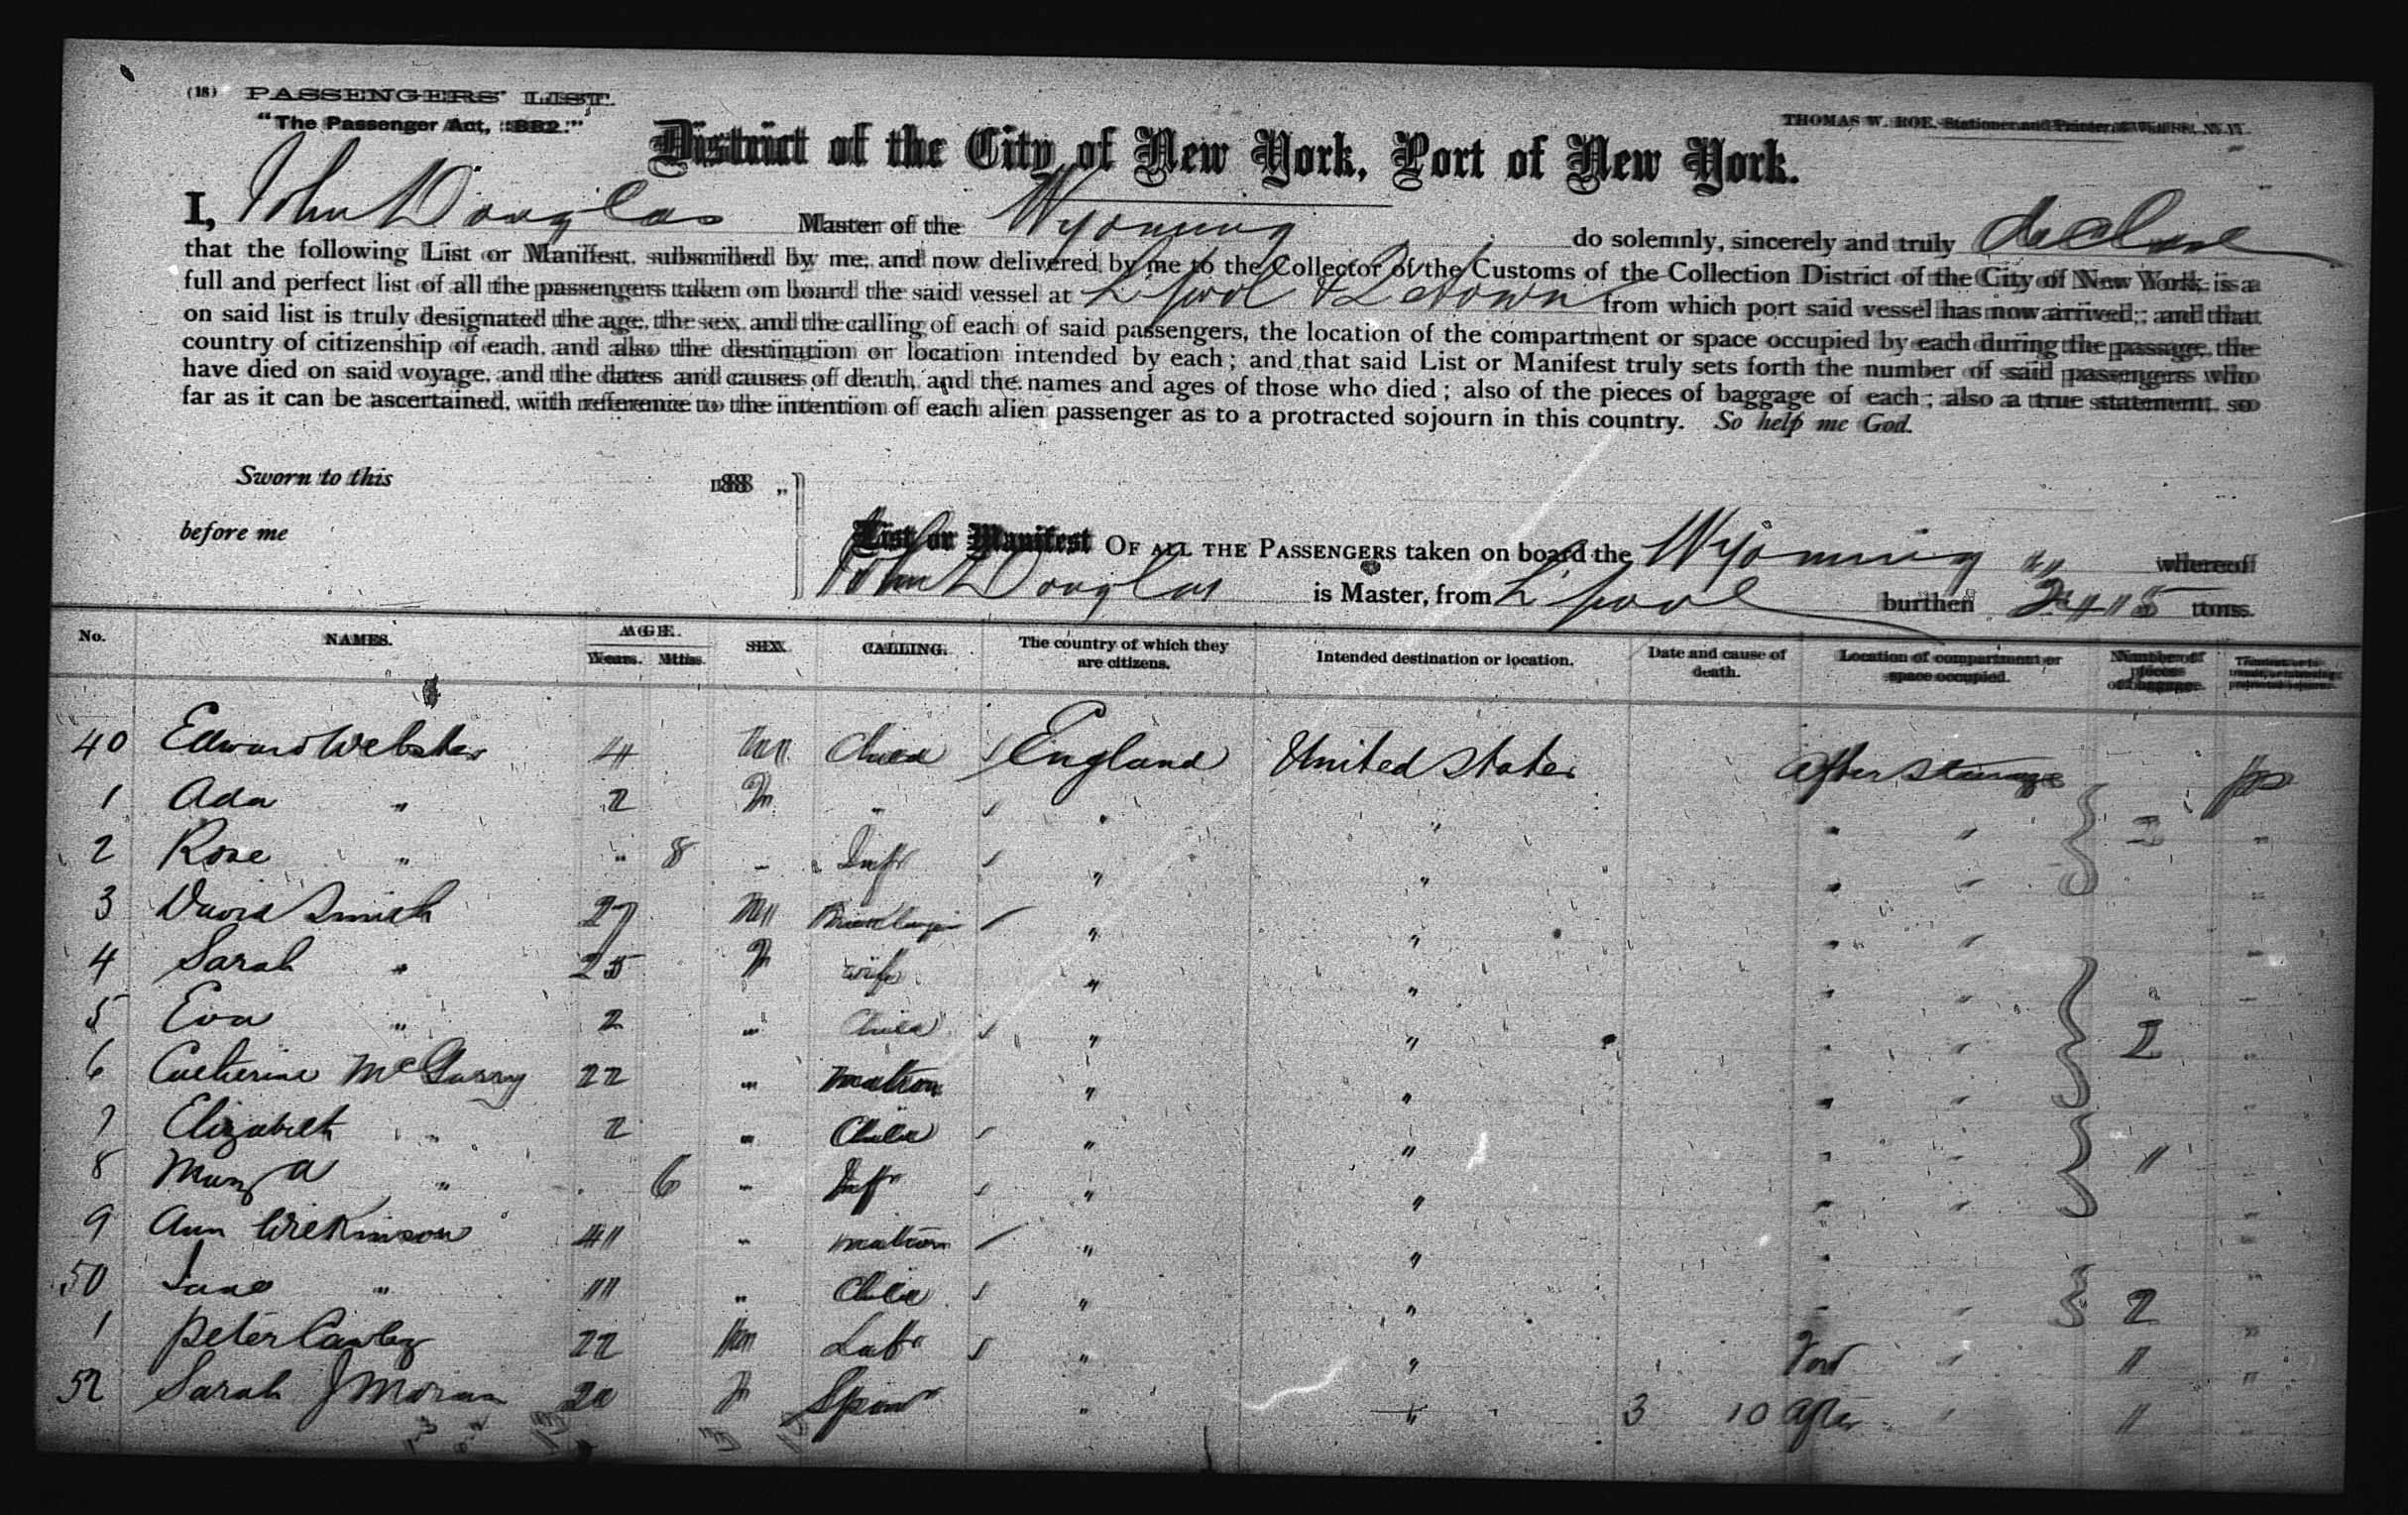 (18) PASSENGERS' LIST.
"The Passenger Act, 1882."
THOMAS W. ROE, Stationer and Printer, N. Y.
District of the City of New York, Port of New York.
I, John Douglas Master of the Wyoming do solemnly, sincerely and truly declare
that the following List or Manifest, subscribed by me, and now delivered by me to the Collector of the Customs of the Collection District of the City of New York, is a
full and perfect list of all the passengers taken on board the said vessel at L'pool & Qetown from which port said vessel has now arrived; and that
on said list is truly designated the age, the sex and the calling of each of said passengers, the location of the compartment or space occupied by each during the passage, the
country of citizenship of each, and also the destination or location intended by each; and that said List or Manifest truly sets forth the number of said passengers who
have died on said voyage, and the dates and causes of death, and the names and ages of those who died; also of the pieces of baggage of each; also a true statement, so
far as it can be ascertained, with reference to the intention of each alien passenger as to a protracted sojourn in this country. So help me God.
Sworn to this 188 "
before me
List or Manifest OF ALL THE PASSENGERS taken on board the Wyoming whereof
John Douglas is Master, from L'pool burthen tons.
No. NAMES. AGE. Years. Mths. SEX. CALLING. The country of which they are citizens. Intended destination or location. Date and cause of death. Location of compartment or space occupied. Number of pieces of baggage.
40 Edward Webster 4 m Child England United States After Steerage
1 Ada " 2 f " " " " "
2 Rose " " 8 " Inft " " " "
3 David Smith 27 m Bricklayer " " " "
4 Sarah " 25 f wife " " " "
5 Eva " 2 " Child " " " " 2
6 Catherine McGarry 22 " matron " " " "
7 Elizabeth " 2 " Child " " " " 1
8 Mary A " 6 " Inft " " " "
9 Ann Wilkinson 41 " matron " " " "
50 Jane " 11 " Child " " " " 2
1 Peter Cawley 22 m Labr " " Ford " 1
52 Sarah J Moran 20 f Spinr " " 3 10 After " 1